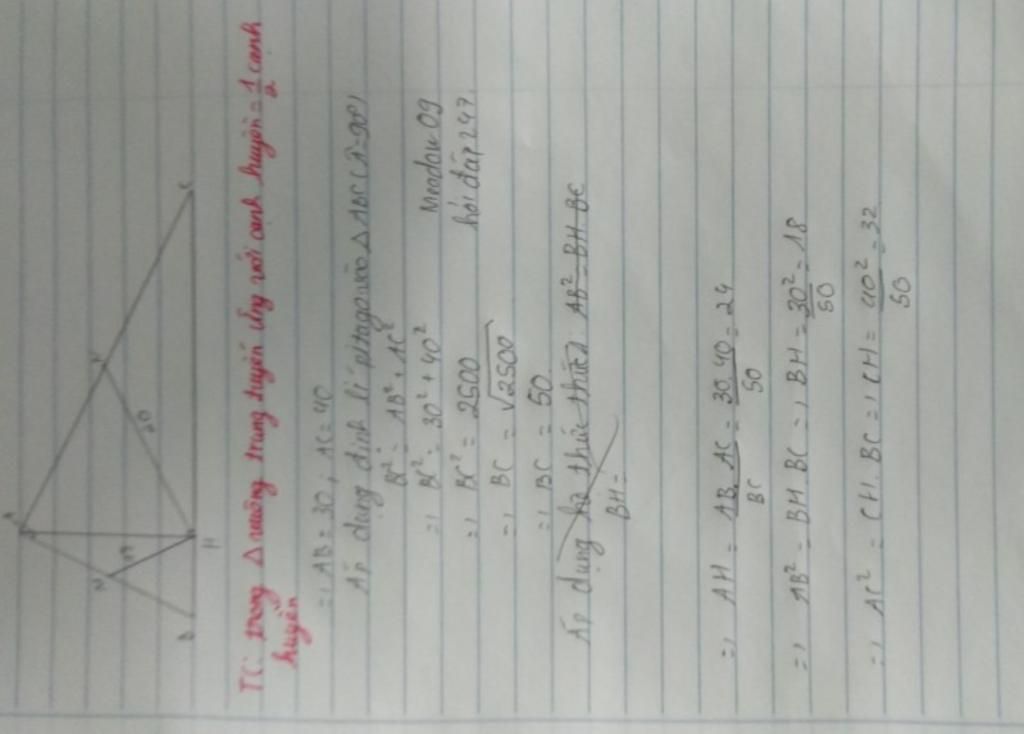 A
N
K
15
20
B
H
C
TC: trong Δ vuông trung tuyến ứng với cạnh huyền = 1/2 cạnh
huyền
=> AB = 30; AC = 40
Áp dụng định lí pitago vào Δ ABC (Â=90°)
BC² = AB² + AC²
=> BC² = 30² + 40²
=> BC² = 2500
=> BC = √2500
=> BC = 50
Meadow09
hỏi đáp 247
Áp dụng hệ thức AB² = BH.BC
BH =
=> AH = AB.AC/BC = 30.40/50 = 24
=> AB² = BH.BC => BH = 30²/50 = 18
=> AC² = CH.BC => CH = 40²/50 = 32